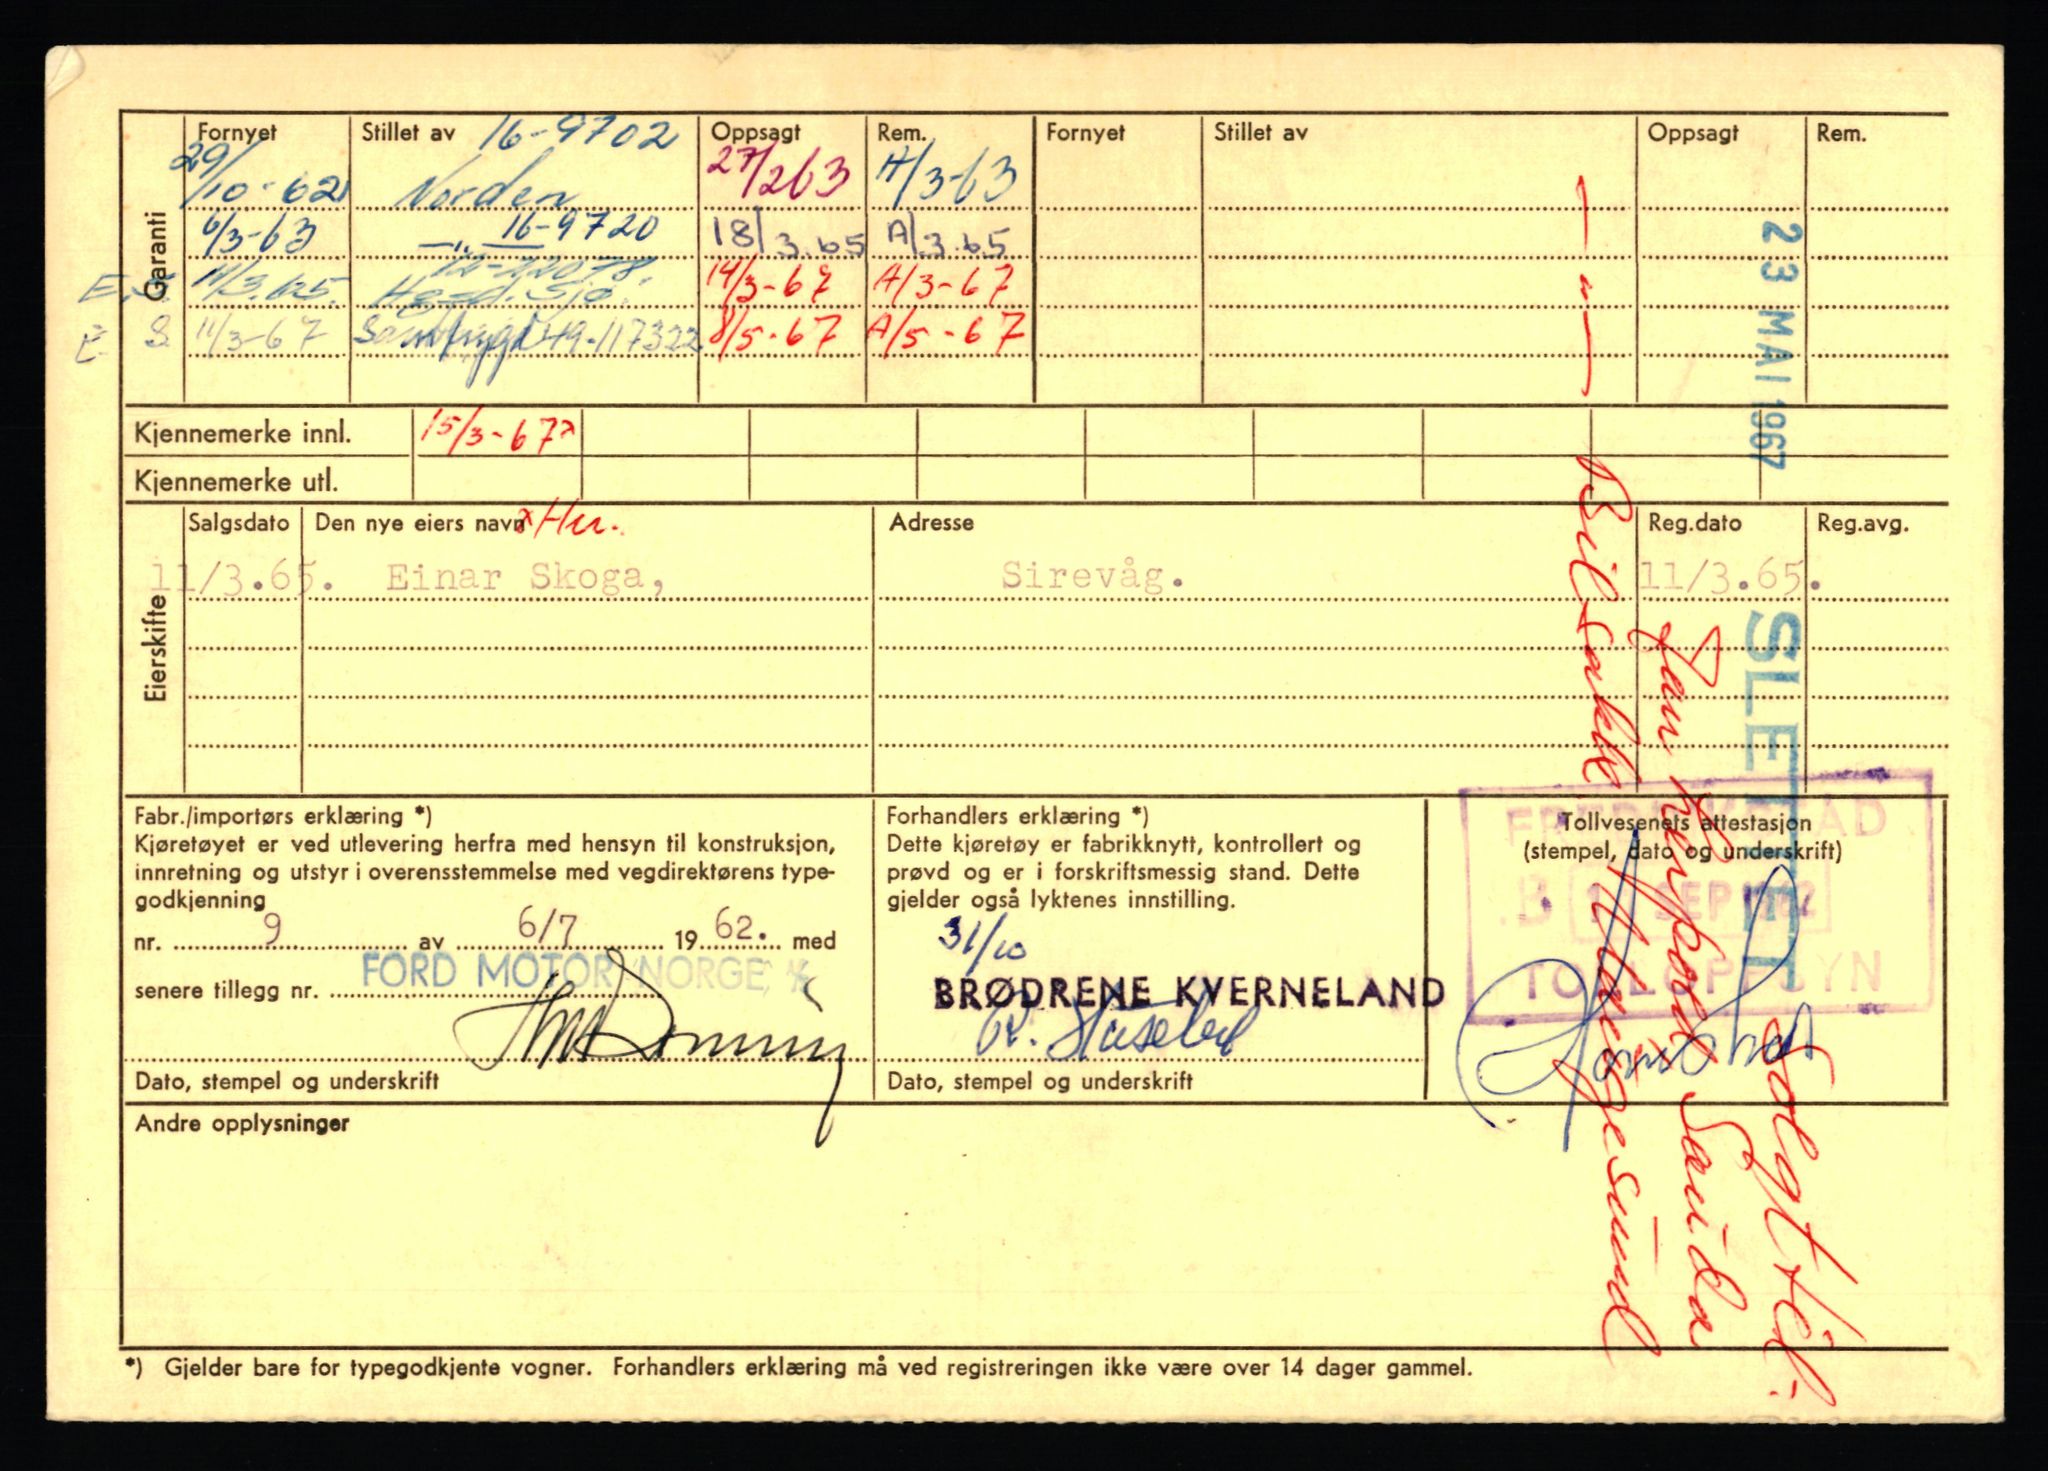 Fornyet Stillet av 16-9702 Oppsagt Rem. Fornyet Stillet av Oppsagt Rem.
Garanti
29/10-62 Norden 27/2 63 A/3-63
6/3-63 —"— 16-9720 18/3.65 A/3.65
E.S. 11/3.65. 14/3-67 A/3-67
E. S. 11/3-67 Samtrygd 49-117322 8/5-67 A/5-67
Kjennemerke innl. 15/3-67 x
Kjennemerke utl.
Eierskifte
Salgsdato Den nye eiers navn x Hu. Adresse Reg.dato Reg.avg.
11/3.65. Einar Skoga, Sirevåg. 11/3.65.
Fabr./importørs erklæring *)
Kjøretøyet er ved utlevering herfra med hensyn til konstruksjon,
innretning og utstyr i overensstemmelse med vegdirektørens type-
godkjenning
nr. 9 av 6/7 1962. med
senere tillegg nr. FORD MOTOR NORGE A/S
Dato, stempel og underskrift
Forhandlers erklæring *)
Dette kjøretøy er fabrikknytt, kontrollert og
prøvd og er i forskriftsmessig stand. Dette
gjelder også lyktenes innstilling.
31/10
BRØDRENE KVERNELAND
Dato, stempel og underskrift
Tollvesenets attestasjon
(stempel, dato og underskrift)
FREDRIKSTAD
SEP 1962
TOLLOPPSYN
Andre opplysninger
*) Gjelder bare for typegodkjente vogner. Forhandlers erklæring må ved registreringen ikke være over 14 dager gammel.
23 MAI 1967
SLETTET
Solgt til:
Sauda
Bilsakk
Haugesund